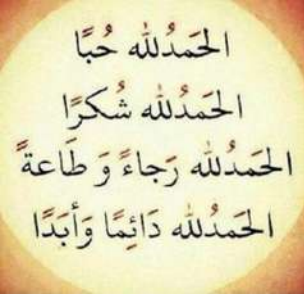 الحَمدُلله حُبًا
الحَمدُلله شُكرًا
الحَمدُلله رَجاءً وَ طَاعةً
الحَمدُلله دَائِمًا وَأبَدًا